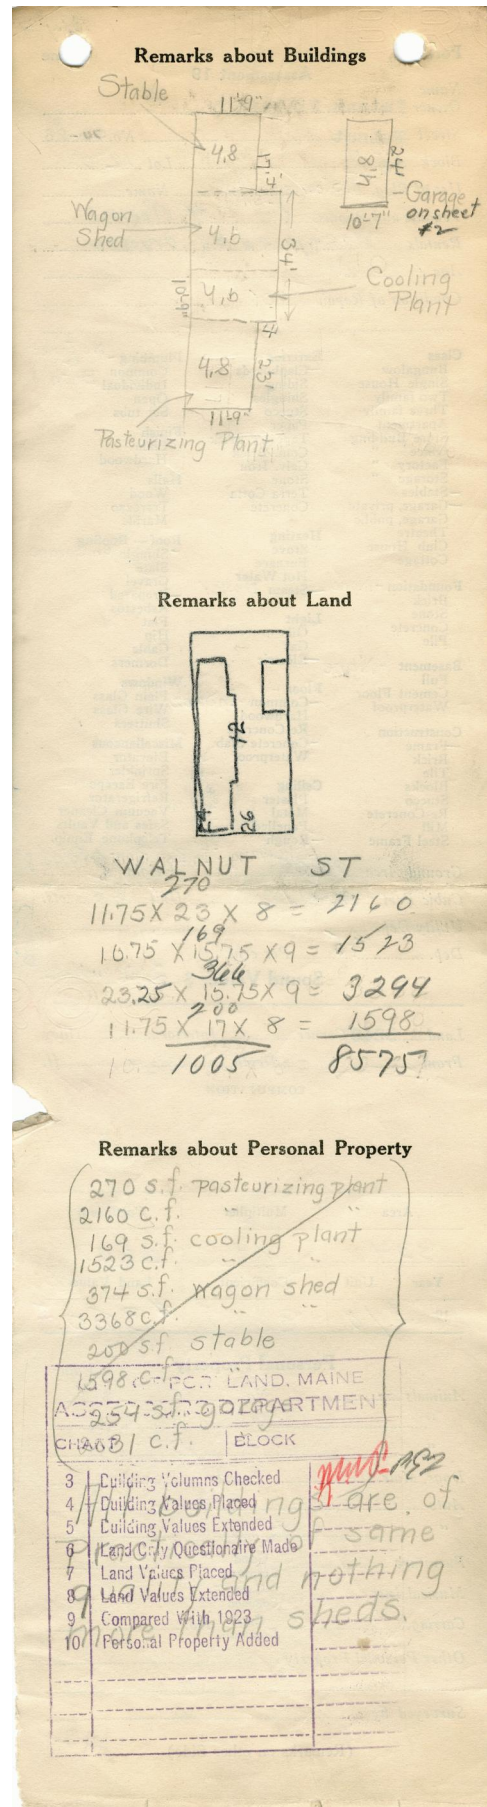 Remarks about Buildings
Stable
11'-9"
4,8
17'
4'
24'
4'8
Garage
on sheet
#2
10'-7"
Wagon
Shed
4,6
34'
Cooling
Plant
4,6
10'-9"
4
4,8
23'
11'-9"
Pasteurizing Plant
Remarks about Land
12
24
26
WALNUT ST
270
11.75 X 23 X 8 = 2160
169
10.75 X 15.75 X 9 = 1523
366
23.25 X 15.75 X 9 = 3294
200
11.75 X 17 X 8 = 1598
1005 8575
Remarks about Personal Property
270 s.f. pasteurizing plant
2160 c.f. " "
169 s.f. cooling plant
1523 c.f. " "
374 s.f. wagon shed
3368 c.f. " "
200 sf stable
1598 c.f. "
254 s.f. garage
2031 c.f.
PORTLAND, MAINE
DEPARTMENT
CHART BLOCK
3 Building Volumns Checked
4 Building Values Placed
5 Building Values Extended
6 Land City Questionaire Made
7 Land Values Placed
8 Land Values Extended
9 Compared With 1923
10 Personal Property Added
All buildings are of
practically of same
quality and nothing
more than sheds.